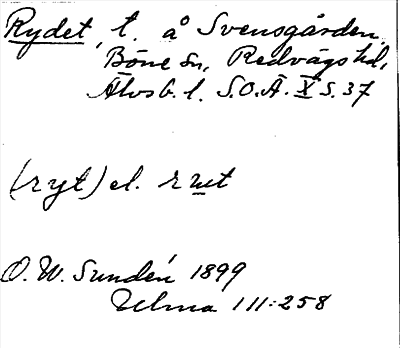 Rydet, t. å Svensgården,
Böne sn, Redvägs hd,
Älvsb. l. S.O.Ä. X s. 37
(ryt) el. rut
O. W. Sundén 1899
Ulma 111:258